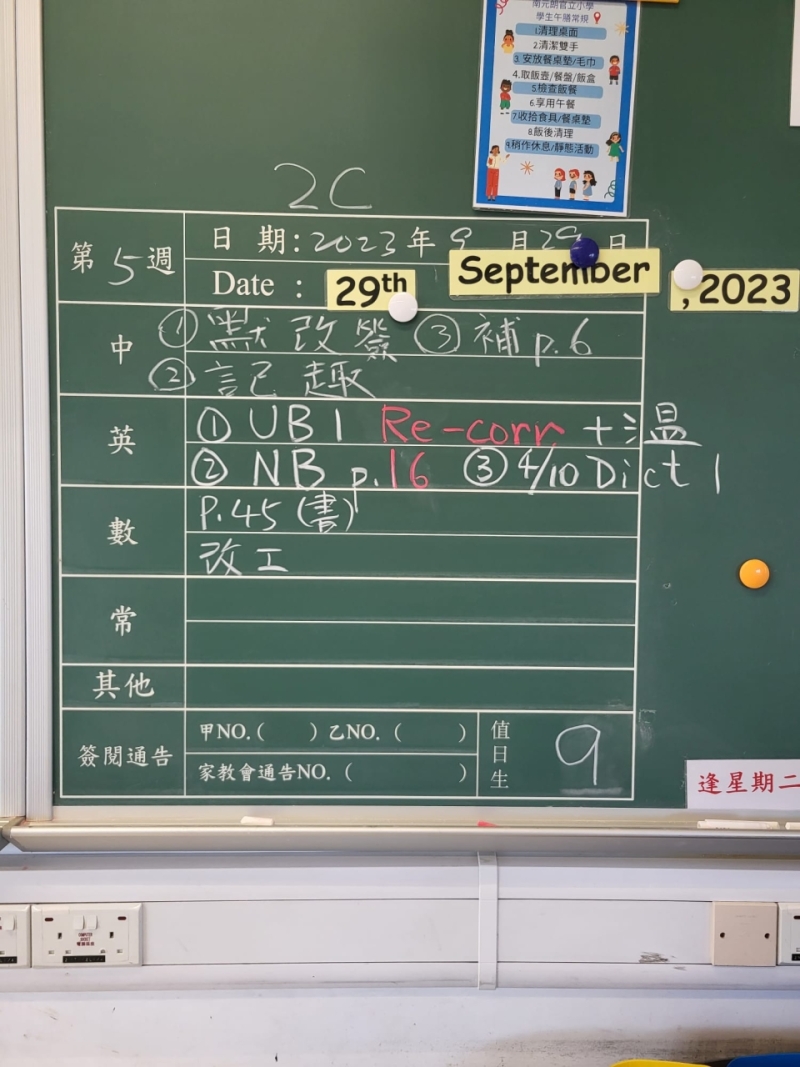 南元朗官立小學
學生午膳常規
1.清理桌面
2.清潔雙手
3.安放餐桌墊/毛巾
4.取飯壺/餐盤/飯盒
5.檢查飯餐
6.享用午餐
7.收拾食具/餐桌墊
8.飯後清理
9.稍作休息/靜態活動
2C
第5週
日 期:2023年9月29日
Date : 29th September , 2023
中
①默改簽 ③補p.6
②記趣
英
①UB1 Re-corr +溫
②NB p.16 ③4/10 Dict 1
數
P.45(書)
改工
常
其他
簽閱通告
甲NO.( )乙NO. ( )
家教會通告NO. ( )
值日生
9
逢星期二
COMPUTER